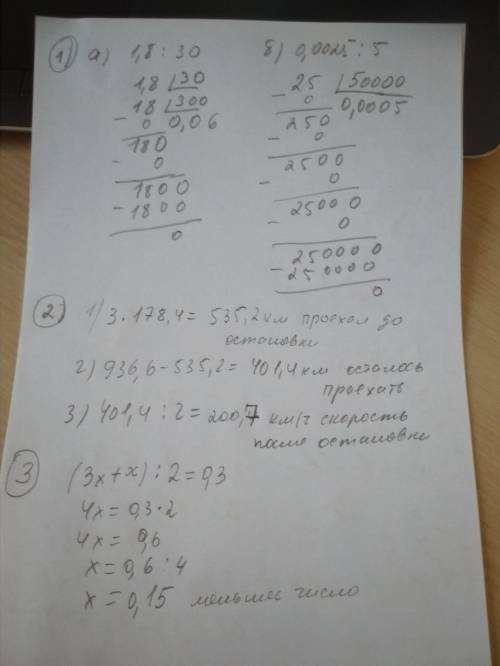 1) а) 1,8 : 30
1,8 | 30
18 | 300
- 0 0,06
180
- 0
1800
- 1800
0
б) 0,0025 : 5
- 25 | 50000
0 0,0005
250
- 0
2500
- 0
25000
- 0
250000
- 250000
0
2) 1) 3 · 178,4 = 535,2 км проехал до
остановки
2) 936,6 - 535,2 = 401,4 км осталось
проехать
3) 401,4 : 2 = 200,7 км/ч скорость
после остановки
3 (3х + х) : 2 = 0,3
4х = 0,3 · 2
4х = 0,6
х = 0,6 : 4
х = 0,15 меньшее число